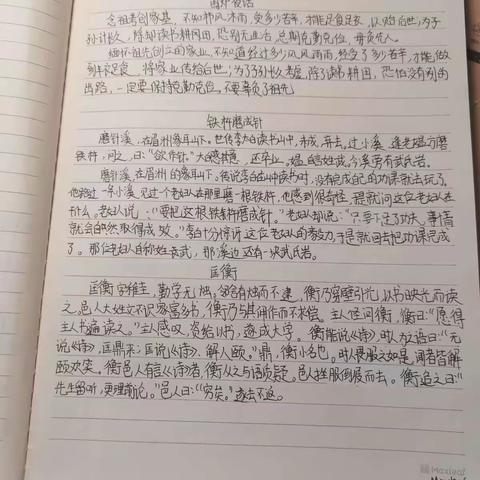 围炉夜话
念祖考创家基,不知栉风沐雨,受多少苦辛,才能足食足衣,以贻后世;为子
孙计长久,除却读书耕田,恐别无生活,总期克勤克俭,毋负先人。
缅怀祖先创立的家业,不知道经过多少风风雨雨,经受了多少苦辛,才能做
到丰衣足食,将家业传给后世;为了子孙长久考虑,除了读书耕田,恐怕没有别的
出路,一定要保持克勤克俭,不要辜负了祖先
铁杵磨成针
磨针溪,在眉州象耳山下。世传李太白读书山中,未成,弃去。过小溪,逢老媪方磨
铁杵,问之,曰:“欲作针。”太白感其意,还卒业。媪自言姓武。今溪旁有武氏岩。
磨针溪,在眉州的象耳山下。传说李白在山中读书时,没有完成自己的功课就去玩了。
他路过一条小溪,见过一个老妇人在那里磨一根铁杵,他感到很奇怪,于是就问这位老妇人在
干什么。老妇人说:“要把这根铁杵磨成针。”老妇人却说:“只要下足功夫,事情
就会自然取得成效。”李白十分惊讶这位老妇人的毅力,于是就回去把功课完成
了。那位老妇人自称姓武,那溪边还有一块武氏岩。
匡衡
匡衡字稚圭,勤学无烛。邻舍有烛而不逮,衡乃穿壁引光,以书映光而读
之。邑人大姓文不识家富多书,衡乃与其佣作而不求偿。主人怪问衡,衡曰:“愿得
主人书遍读之。”主人感叹,资给以书,遂成大学。衡能说《诗》,时人为之语曰:“无
说《诗》,匡鼎来;匡说《诗》,解人颐。”鼎,衡小名也。时人畏服之如是,闻者皆解
颐欢笑。衡邑人有言《诗》者,衡从之与语质疑。邑人挫服倒屣而去。衡追之曰:“
先生留听,更理前论。”邑人曰:“穷矣。”遂去不返。
Maxleaf